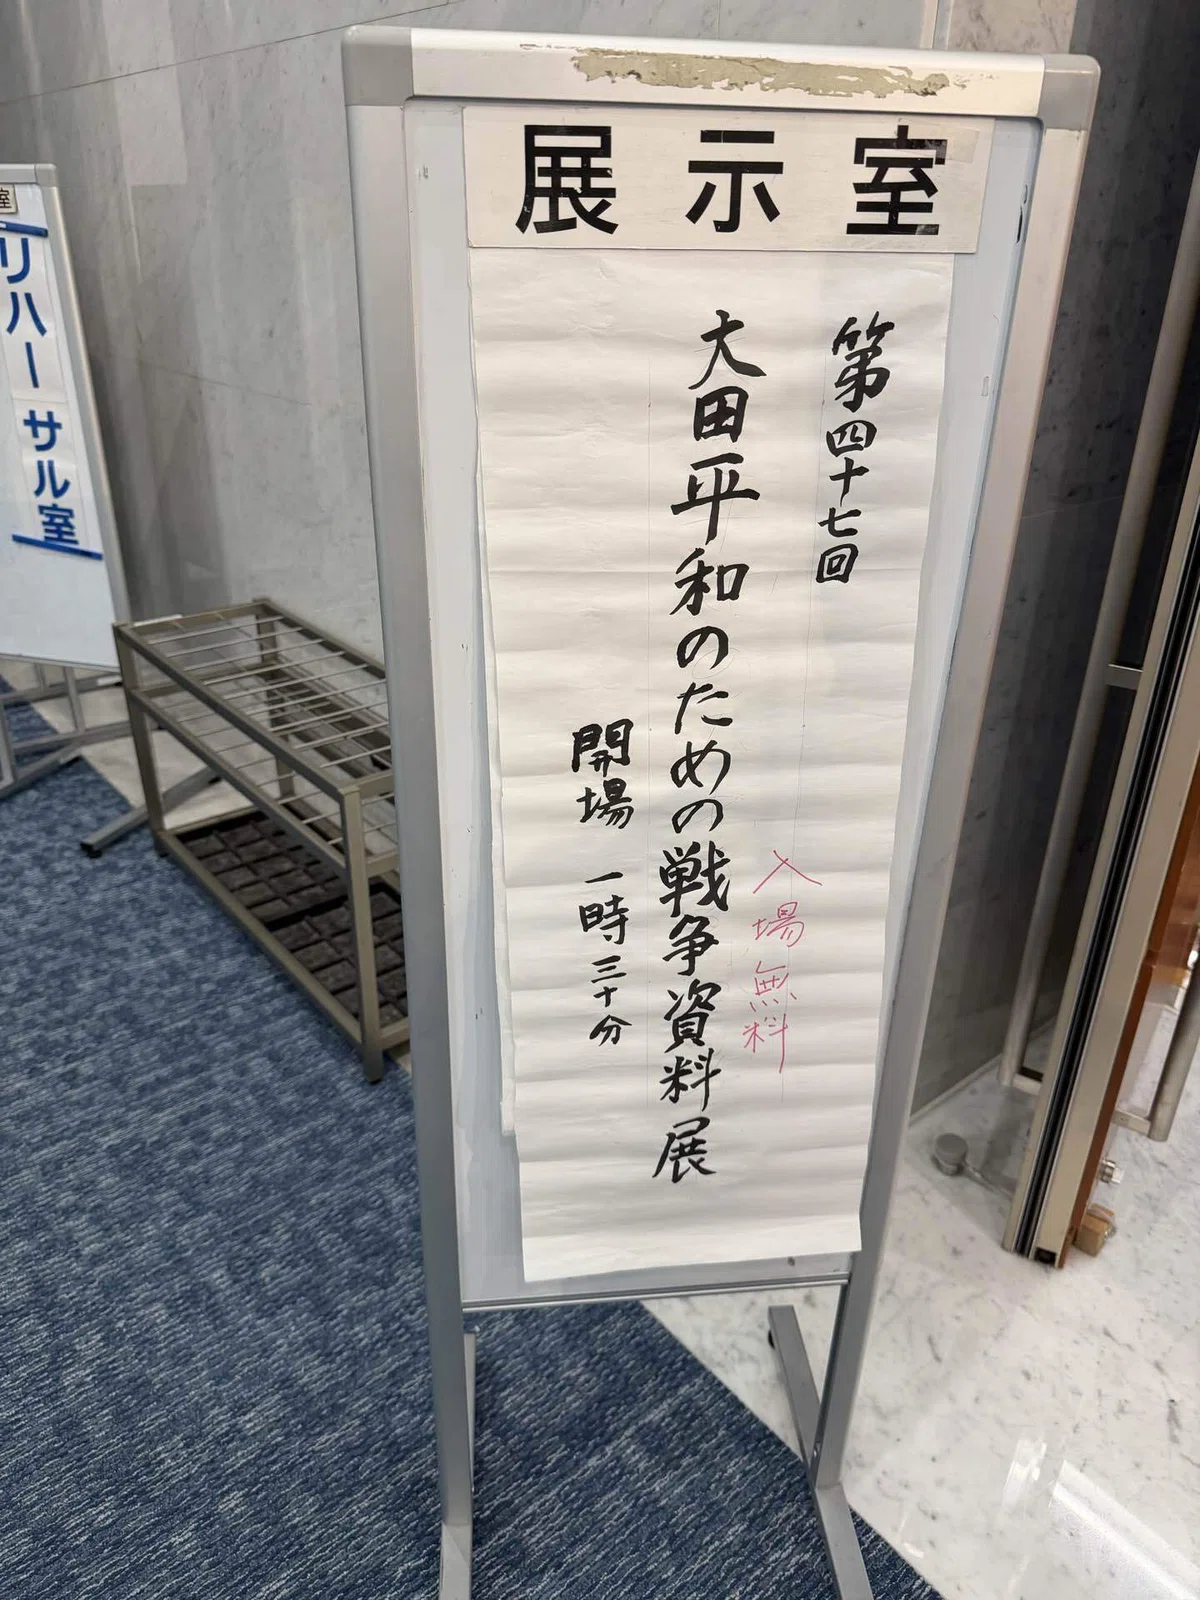 展示室
第四十七回
大田平和のための戦争資料展
入場無料
開場 一時三十分
室
リハーサル室